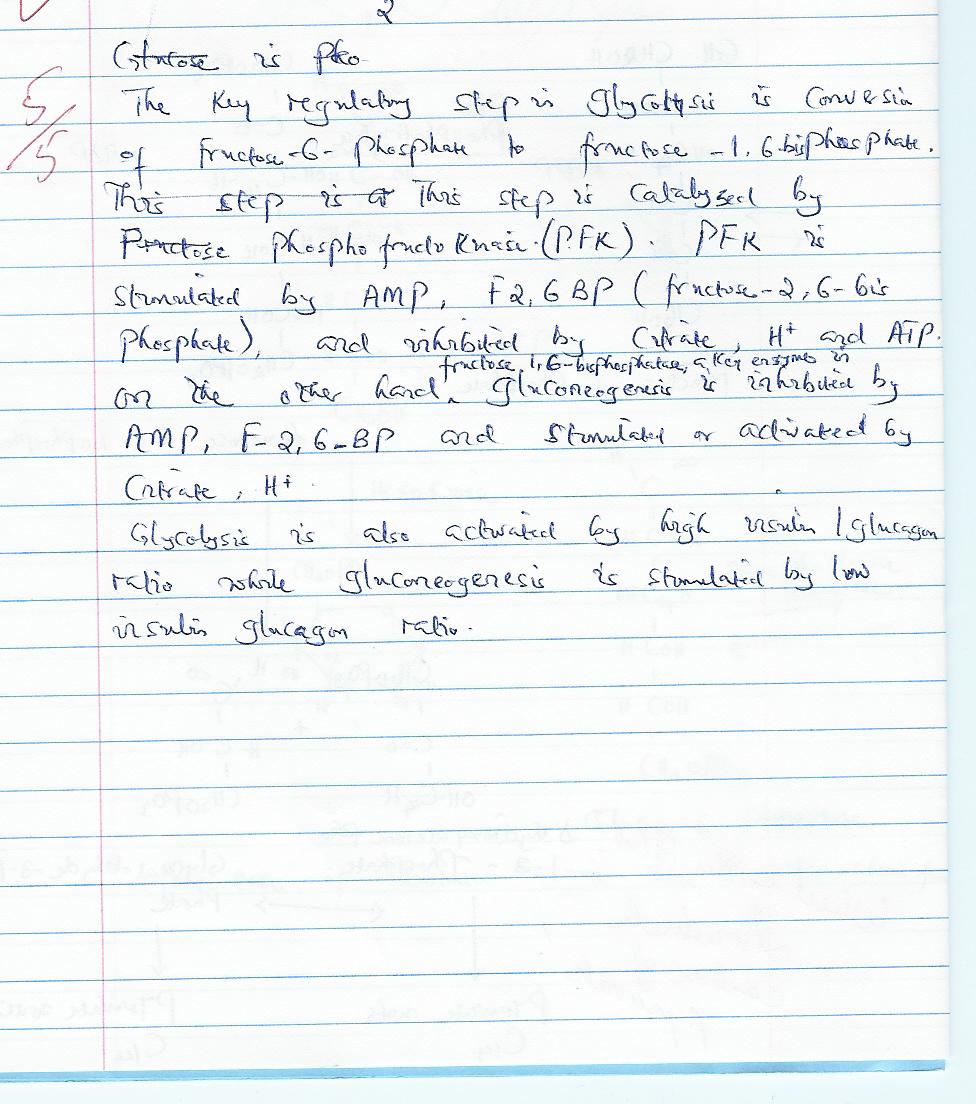 2
Glucose is pho
5/5
The Key regulatory step in glycolysis is Conversion
of fructose-6-phosphate to fructose-1,6-bisphosphate.
This step is a This step is Catalyzed by
Fructose phosphofructokinase (PFK). PFK is
Stimulated by AMP, F2,6BP (fructose-2,6-bis
phosphate), and inhibited by Citrate, H+ and ATP.
fructose 1,6-bisphosphatase, a key enzyme in
on the other hand ^ gluconeogenesis is inhibited by
AMP, F-2,6-BP and Stimulated or activated by
Citrate, H+.
Glycolysis is also activated by high insulin/glucagon
ratio while gluconeogenesis is stimulated by low
insulin glucagon ratio.